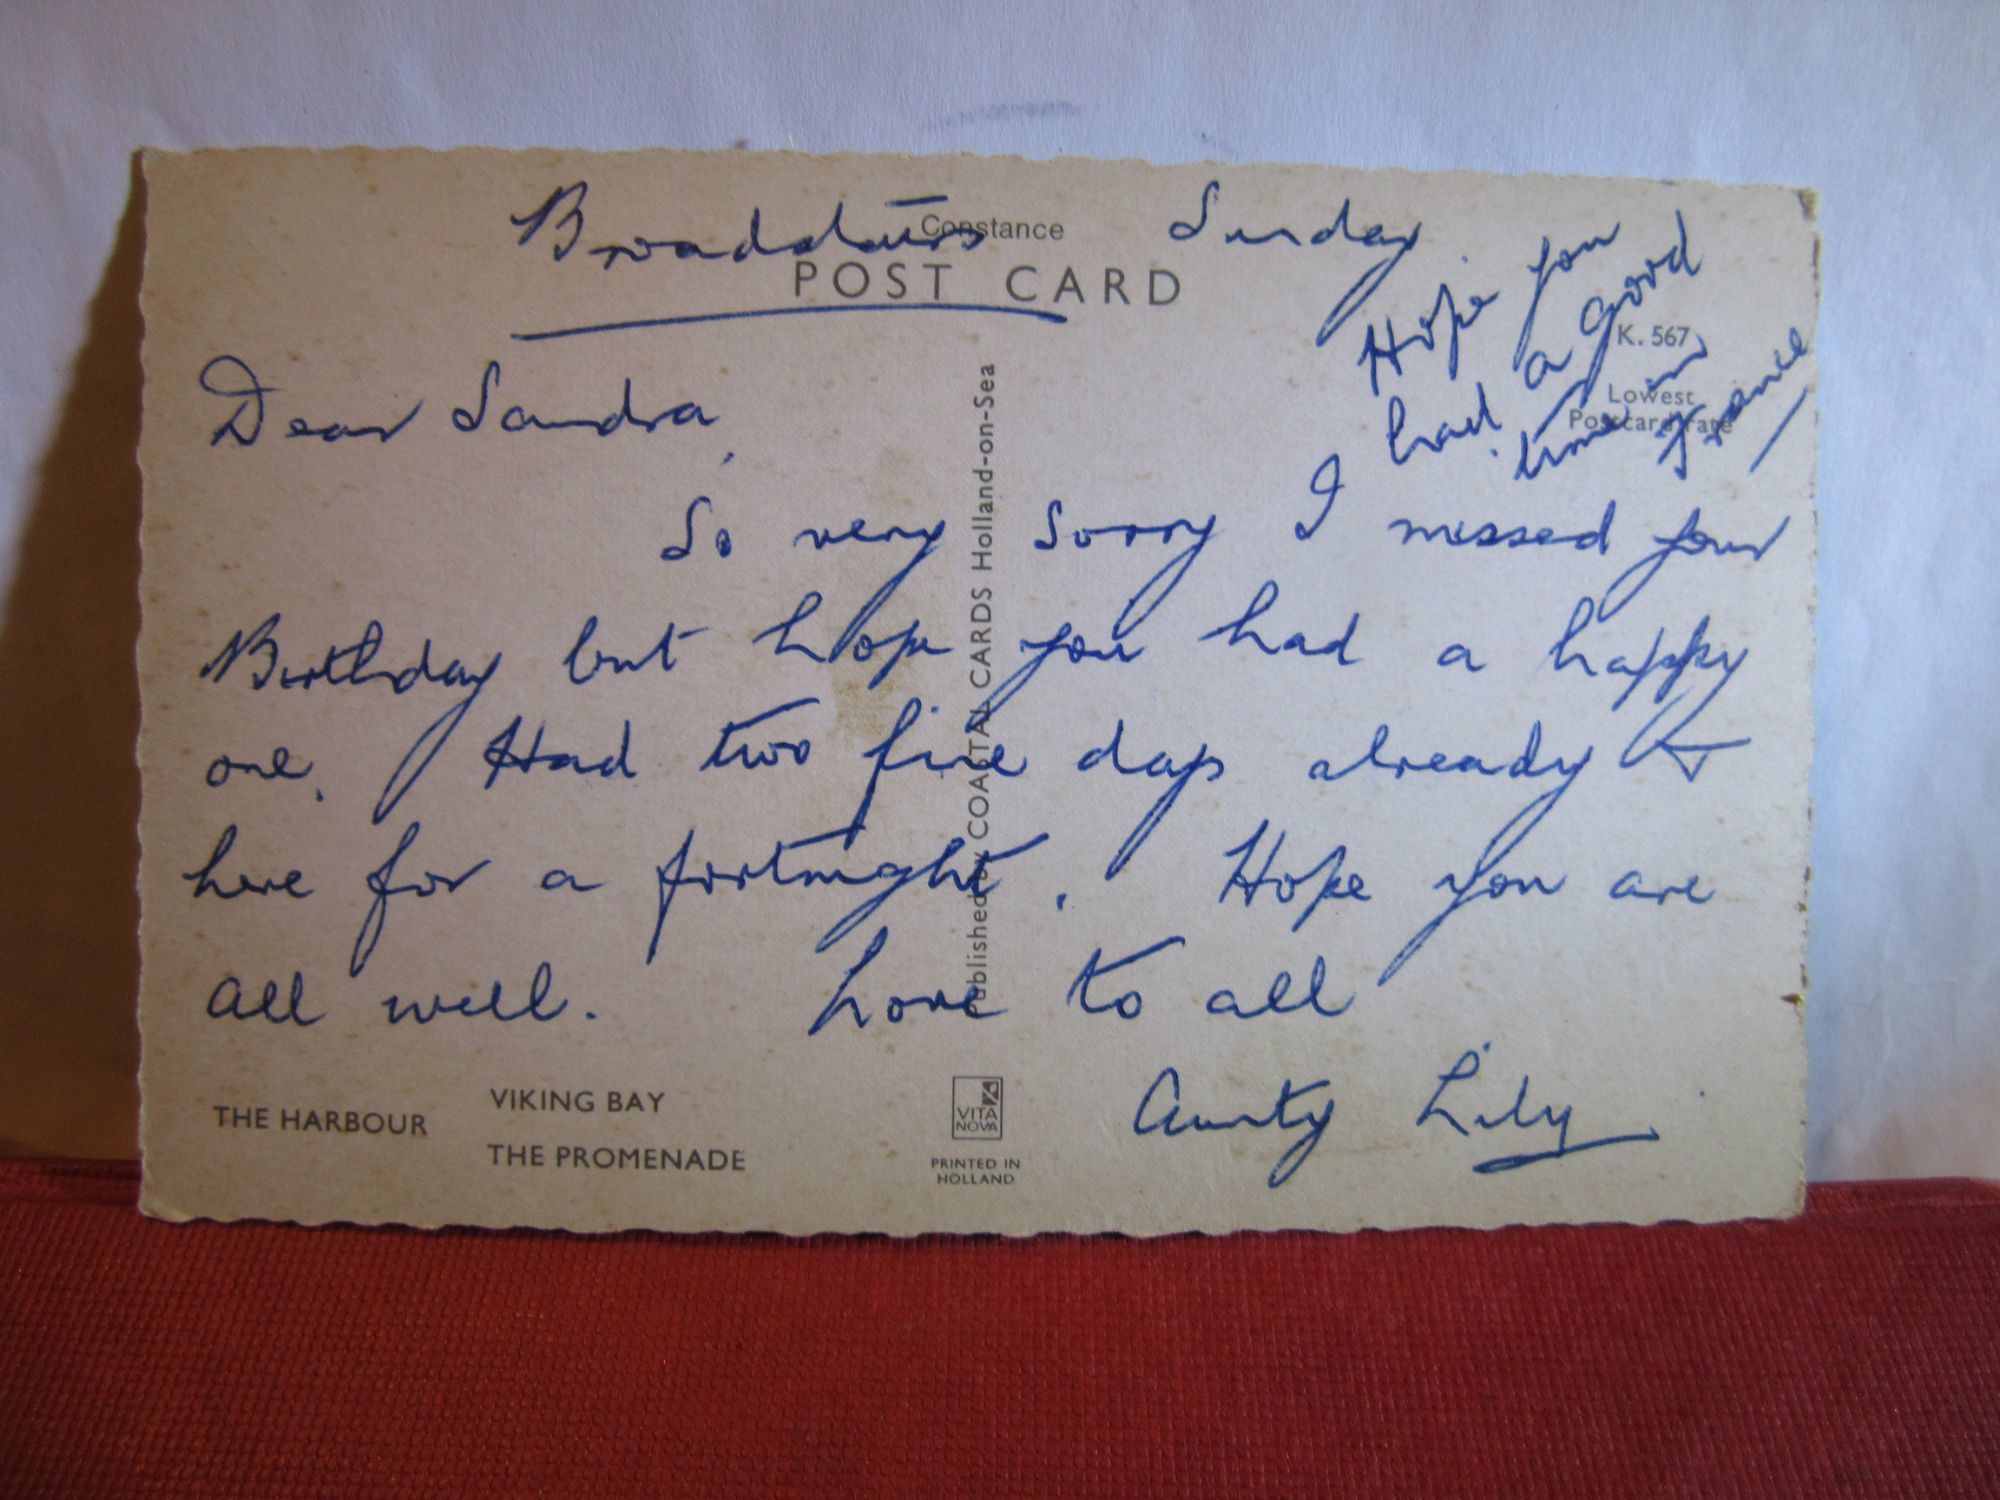 Broadstairs Sunday
Constance
POST CARD
Hope you
had a good
time in
France
K. 567
Lowest
Postcard rate
Dear Sandra,
So very sorry I missed your
Birthday but hope you had a happy
one. Had two fine days already &
here for a fortnight. Hope you are
all well. Love to all
Aunty Lily
Published by COATAL CARDS Holland-on-Sea
THE HARBOUR
VIKING BAY
THE PROMENADE
VITA
NOVA
PRINTED IN
HOLLAND